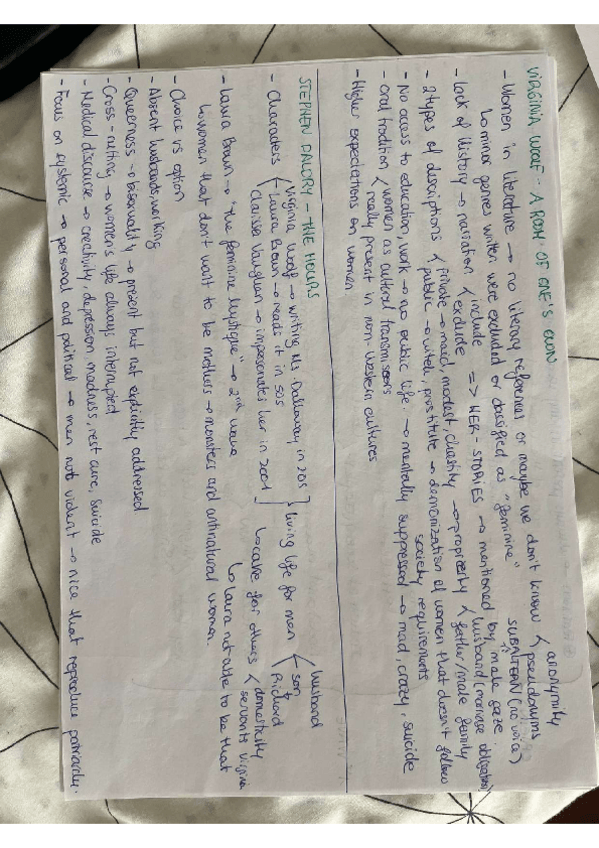 VIRGINIA WOOLF - A ROOM OF ONE'S OWN
- Women in literature → no literary references or maybe we don't know < anonymity
pseudonyms
↳ minor genres written were excluded or classified as "feminine" SUBALTERN (no voice)
- Lack of History → narration < exclude
include => HER-STORIES → mentioned by male gaze
husband (marriage obligation)
- 2 types of descriptions < private → maid, modest, chastity → propriety < father/male family
public → witch, prostitute → demonization of women that doesn't follow
society requirements
- No access to education, work → no public life → mentally suppressed → mad, crazy, suicide
- Oral tradition < women as cultural transmissors
really present in non-western cultures
- Higher expectations on women
STEPHEN DALDRY - THE HOURS
- Characters < Virginia Woolf → writing Ms Dalloway in 20s
Laura Brown → reads it in 50s
Clarissa Vaughan → impersonates her in 2001
living life for men < husband
son
Richard
↳ care for others < domesticity
servants virginia
- Laura Brown → "the feminine mystique" → 2nd wave ↳ Laura not able to be that
↳ women that don't want to be mothers → monsters and unnatural woman.
- Choice vs option
- Absent husbands, working
- Queerness → bisexuality → present but not explicitly addressed
- Cross-cutting → women's life always interrupted
- Medical discourse → creativity, depression, madness, rest cure, suicide
- Focus on systemic → personal and political → men not violent → nice that reproduce patriarchy.